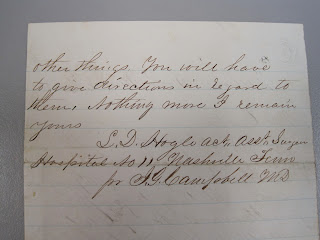 other things. You will have
to give directions in regard to
them. Nothing more I remain
yours
L. D. Hogle act. Asst. Surgeon
Hospital No 11, Nashville Tenn
for J. G. Campbell M.D.